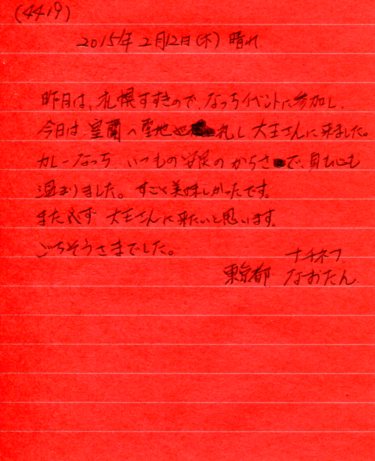 (4419)
2015年2月12日(木) 晴れ
昨日は、札幌すすきので、なっちイベントに参加し、
今日は、室蘭の聖地巡礼し 大王さんに来ました。
カレーなっち いつもの の からさで、身も心も
温まりました。すごく美味しかったです。
また必ず 大王さんに来たいと思います。
ごちそうさまでした。
ナチネフ
東京都 なおたん